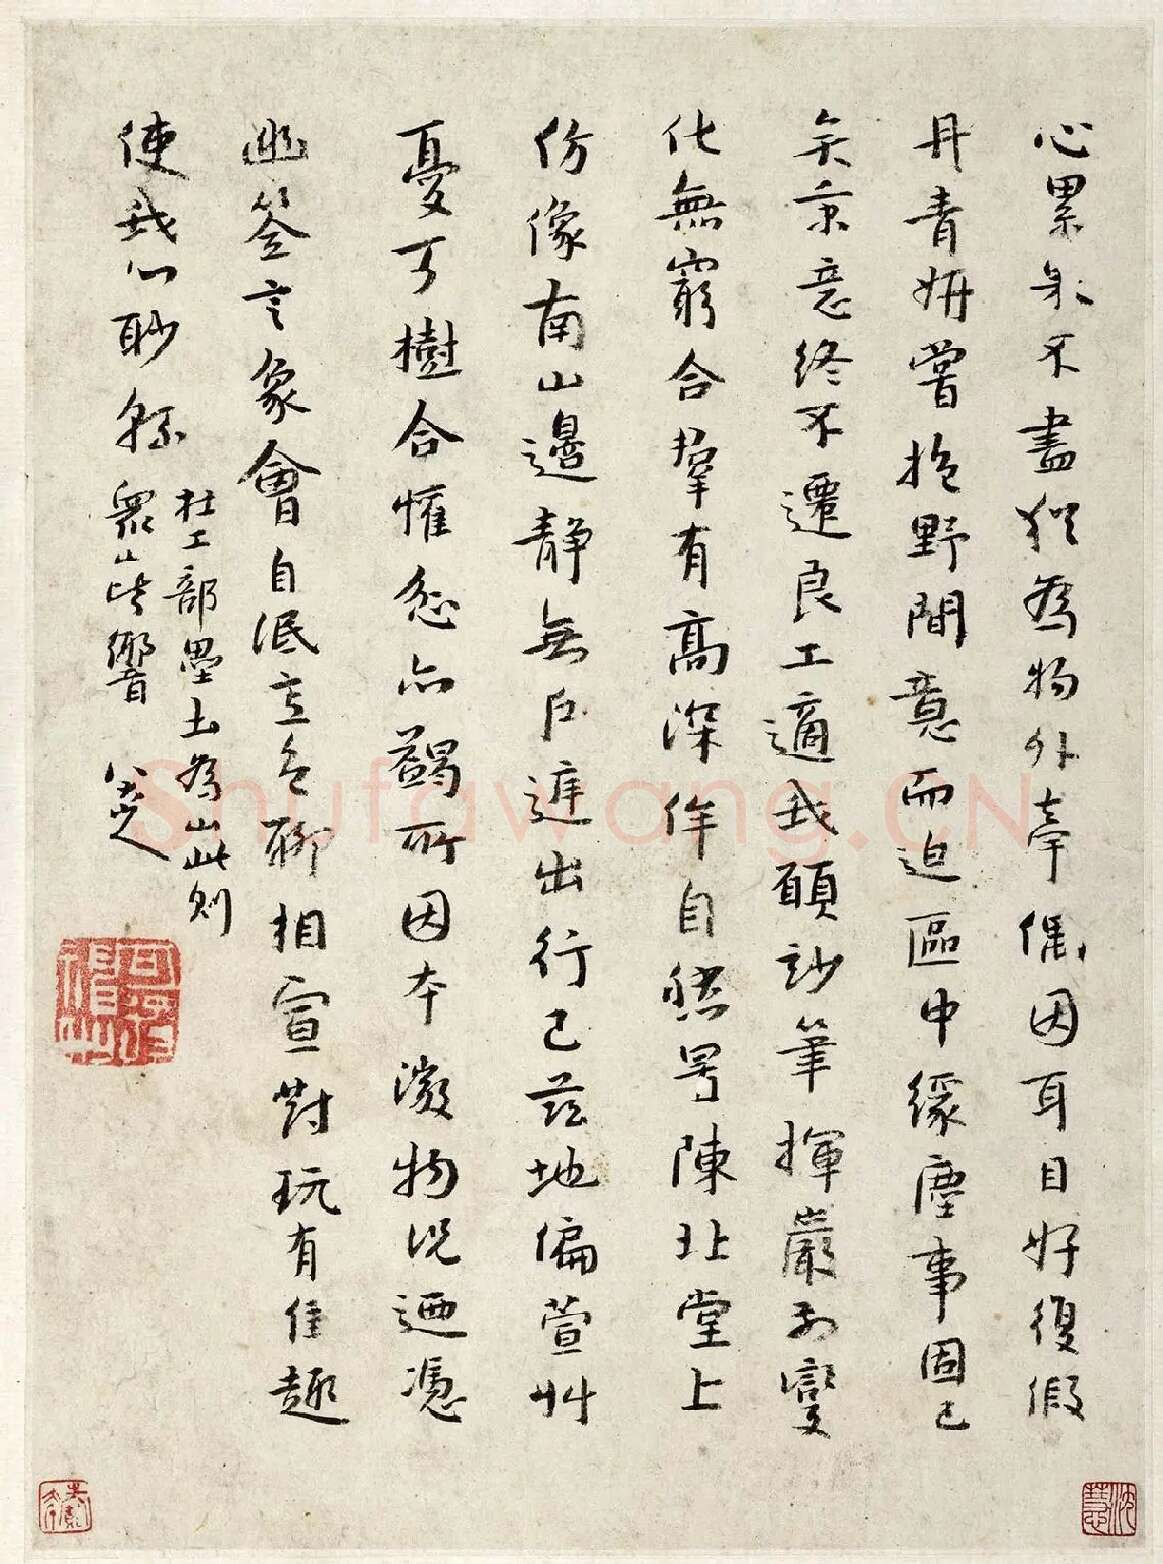 心累不盡猶為物外牽偶因耳目好復假
丹青妍嘗抱野間意而迫區中緣塵事固已
矣秉意終不遷良工適我願妙筆揮巖列變
化無窮合羣有高深侔自然陳北堂上
仿像南山邊靜無戶庭出行已茲地偏萱艸
憂可樹合懽忿亦蠲所因本微物況迺憑
幽筌言象會自泯意色聊相宣對玩有佳趣
使我心眇綿
杜工部壘土為山此則
眾山皆響 八大山人
可得神仙
Shufawang.CN